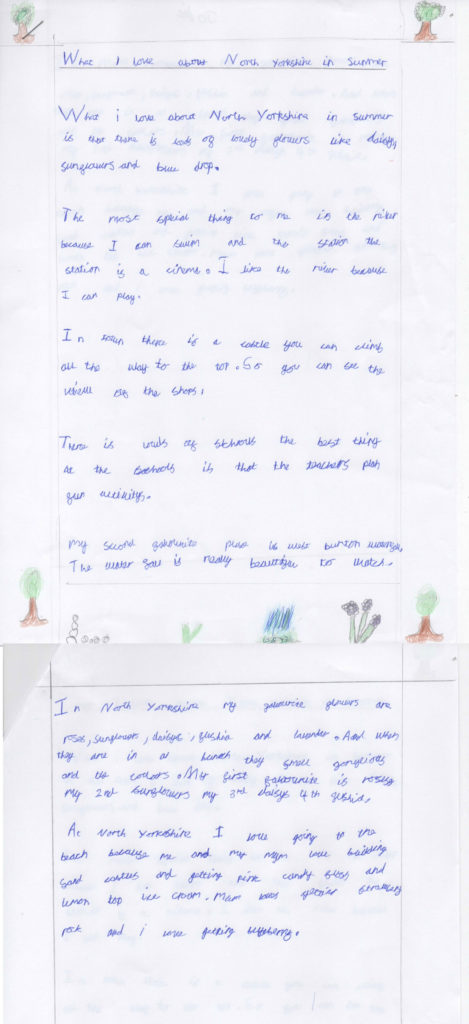 What I love about North Yorkshire in Summer
What i love about North Yorkshire in summer
is that there is loads of flowers like daisys,
sunflowers and blue drop.
The most special thing to me is the river
because I can swim and the station the
station is a cinema. I like the river because
I can play.
In town there is a castle you can climb
all the way to the top. So you can see the
of the shops.
There is louds of schools the best thing
At the is that the teachers plan
fun activitys.
My second favourite place is west burton
The water is really beautiful to watch.
In North Yorkshire my favourite flowers are
roses, sunflowers, daisys, fushia and lavander. And when
they are in a bunch they smell
and . My first favourite is roses
my 2nd sunflowers my 3rd daisys 4th fushia.
At North Yorkshire I love going to the
beach because me and my mum love building
sand castles and getting pink candy floss and
lemon top ice cream. Mum loves strawberry
rock and i love